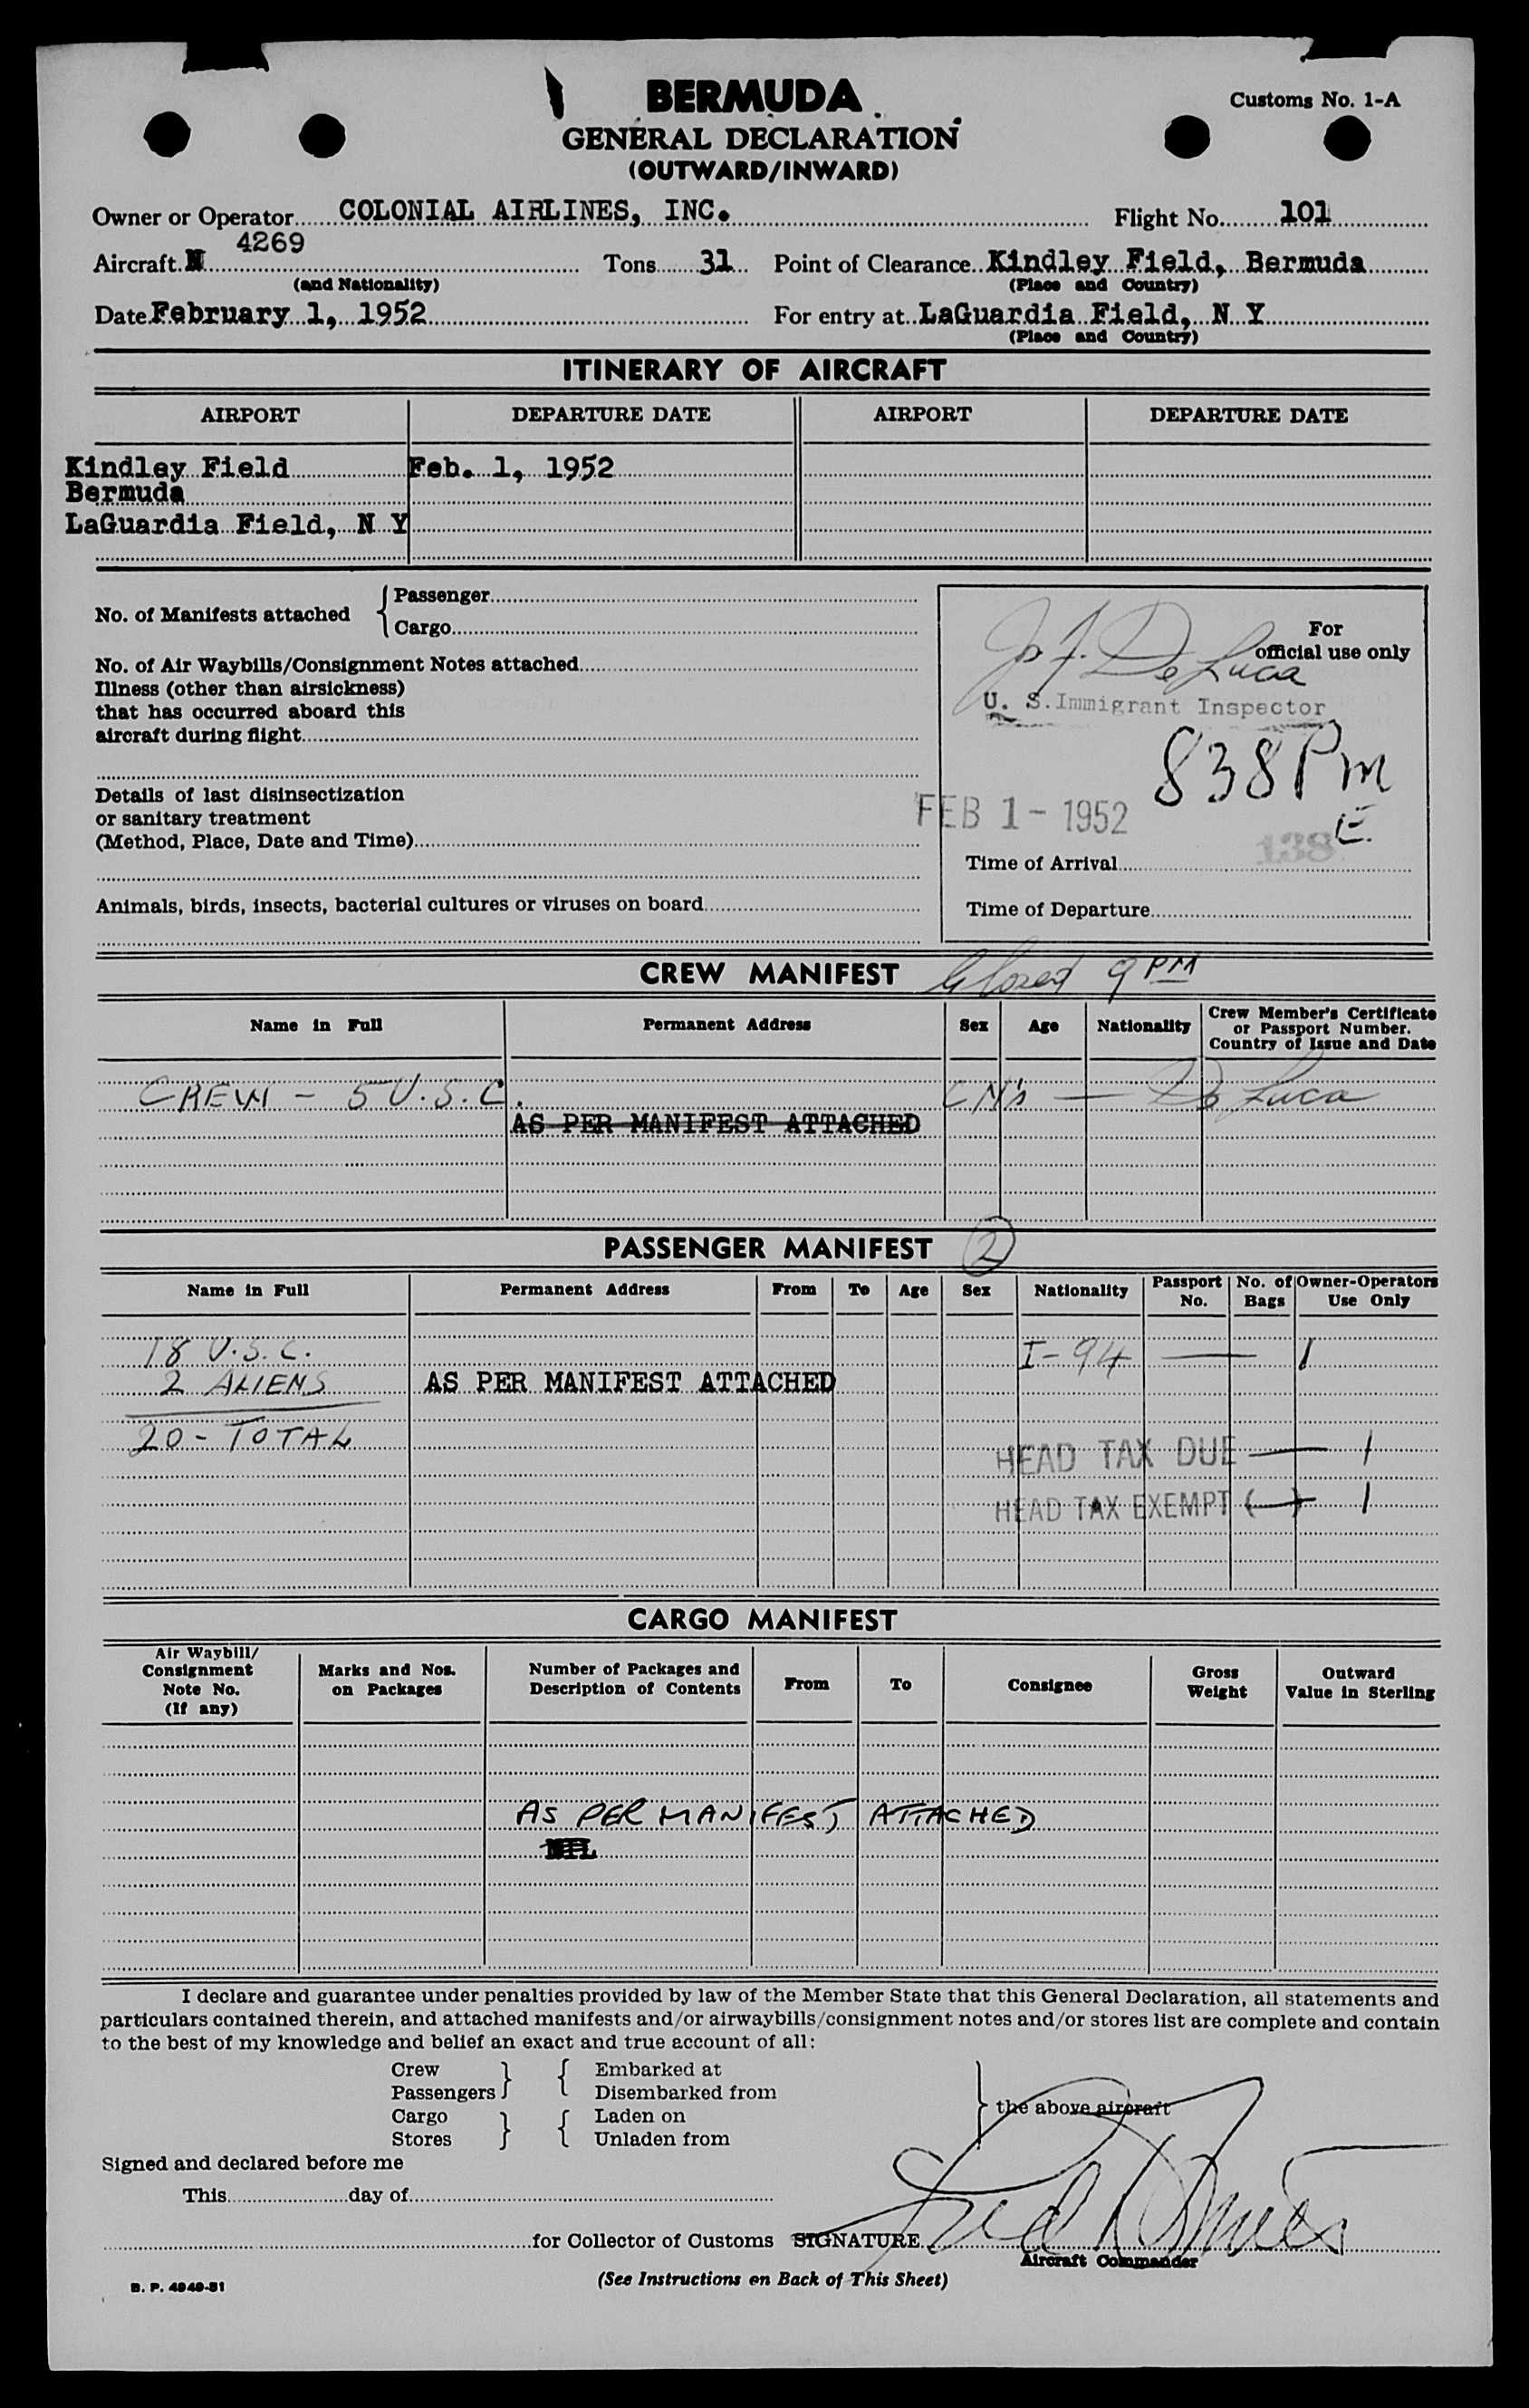 BERMUDA
Customs No. 1-A
GENERAL DECLARATION
(OUTWARD/INWARD)
Owner or Operator COLONIAL AIRLINES, INC. Flight No. 101
Aircraft N 4269 Tons 31 Point of Clearance Kindley Field, Bermuda
(and Nationality) (Place and Country)
Date February 1, 1952 For entry at LaGuardia Field, N Y
(Place and Country)
ITINERARY OF AIRCRAFT
AIRPORT DEPARTURE DATE AIRPORT DEPARTURE DATE
Kindley Field Feb. 1, 1952
Bermuda
LaGuardia Field, N Y
No. of Manifests attached { Passenger
Cargo
No. of Air Waybills/Consignment Notes attached
Illness (other than airsickness)
that has occurred aboard this
aircraft during flight
Details of last disinsectization
or sanitary treatment
(Method, Place, Date and Time)
Animals, birds, insects, bacterial cultures or viruses on board
For
official use only
De Luca
U. S. Immigrant Inspector
838 Pm
E
FEB 1 - 1952
138
Time of Arrival
Time of Departure
CREW MANIFEST Closed 9 PM
Name in Full Permanent Address Sex Age Nationality Crew Member's Certificate or Passport Number. Country of Issue and Date
CREW - 5 U.S.C. CM's — De Luca
AS PER MANIFEST ATTACHED
PASSENGER MANIFEST 2
Name in Full Permanent Address From To Age Sex Nationality Passport No. No. of Bags Owner-Operators Use Only
18 U.S.C. I-94 — 1
2 ALIENS AS PER MANIFEST ATTACHED
20 - TOTAL
HEAD TAX DUE — 1
HEAD TAX EXEMPT (—) 1
CARGO MANIFEST
Air Waybill/ Consignment Note No. (If any) Marks and Nos. on Packages Number of Packages and Description of Contents From To Consignee Gross Weight Outward Value in Sterling
AS PER MANIFEST ATTACHED
NIL
I declare and guarantee under penalties provided by law of the Member State that this General Declaration, all statements and
particulars contained therein, and attached manifests and/or airwaybills/consignment notes and/or stores list are complete and contain
to the best of my knowledge and belief an exact and true account of all:
Crew } { Embarked at
Passengers Disembarked from
} the above aircraft
Cargo } { Laden on
Stores Unladen from
Signed and declared before me
This day of
for Collector of Customs SIGNATURE
Aircraft Commander
B. P. 4949-51
(See Instructions on Back of This Sheet)